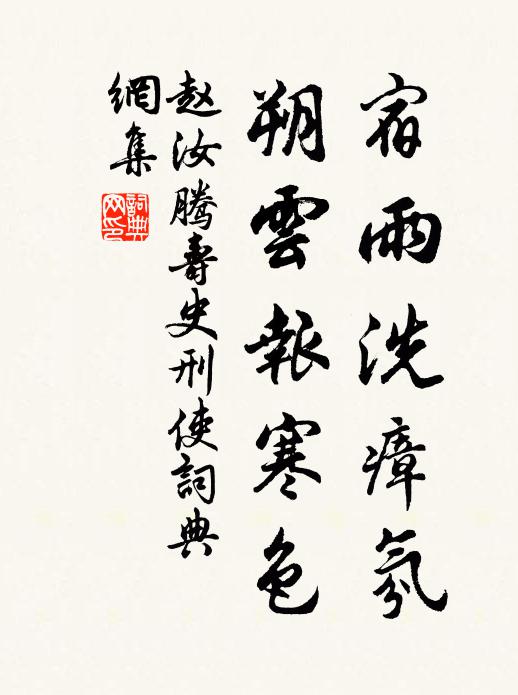 宿雨洗瘴氛
朔雲報寒色
赵汝腾壽史刑使詞典
網集
詞典
网印